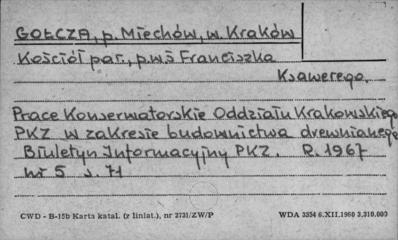 GOŁCZA, p. Miechów, w. Kraków
Kościół par., p.w.ś Franciszka
Ksawerego.
Prace Konserwatorskie Oddziału Krakowskiego
PKZ w zakresie budownictwa drewnianego
Biuletyn Informacyjny PKZ. R. 1967
nr 5 s. 71
CWD - B-15b Karta katal. (z liniat.), nr 2731/ZW/P WDA 3354 6.XII.1960 3,310.000